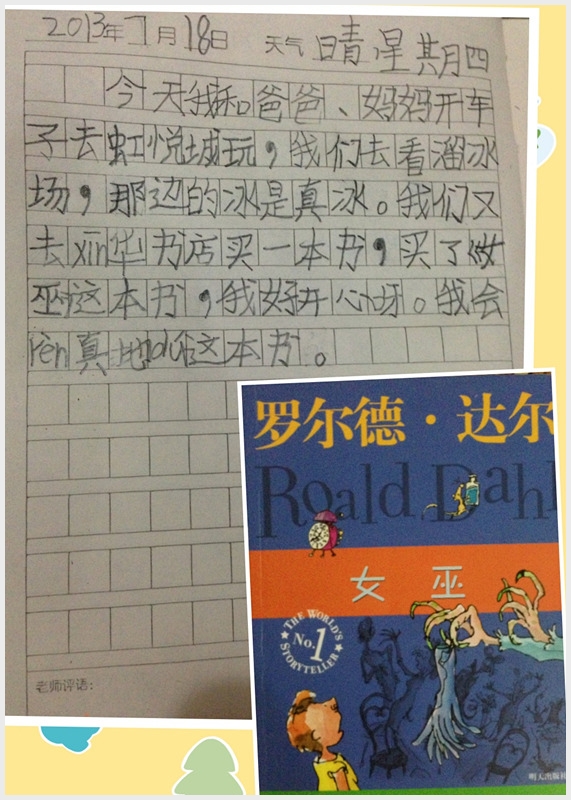 2013年7月18日 天气 晴 星期四
今天我和爸爸、妈妈开车
子去虹悦城玩，我们去看溜冰
场，那边的冰是真冰。我们又
去xin华书店买一本书，买了《女
巫》这本书，我好开心呀。我会
rèn真地dú这本书。
老师评语：
罗尔德·达尔
Roald Dahl
女巫
THE WORLD'S
No.1
STORYTELLER
明天出版社